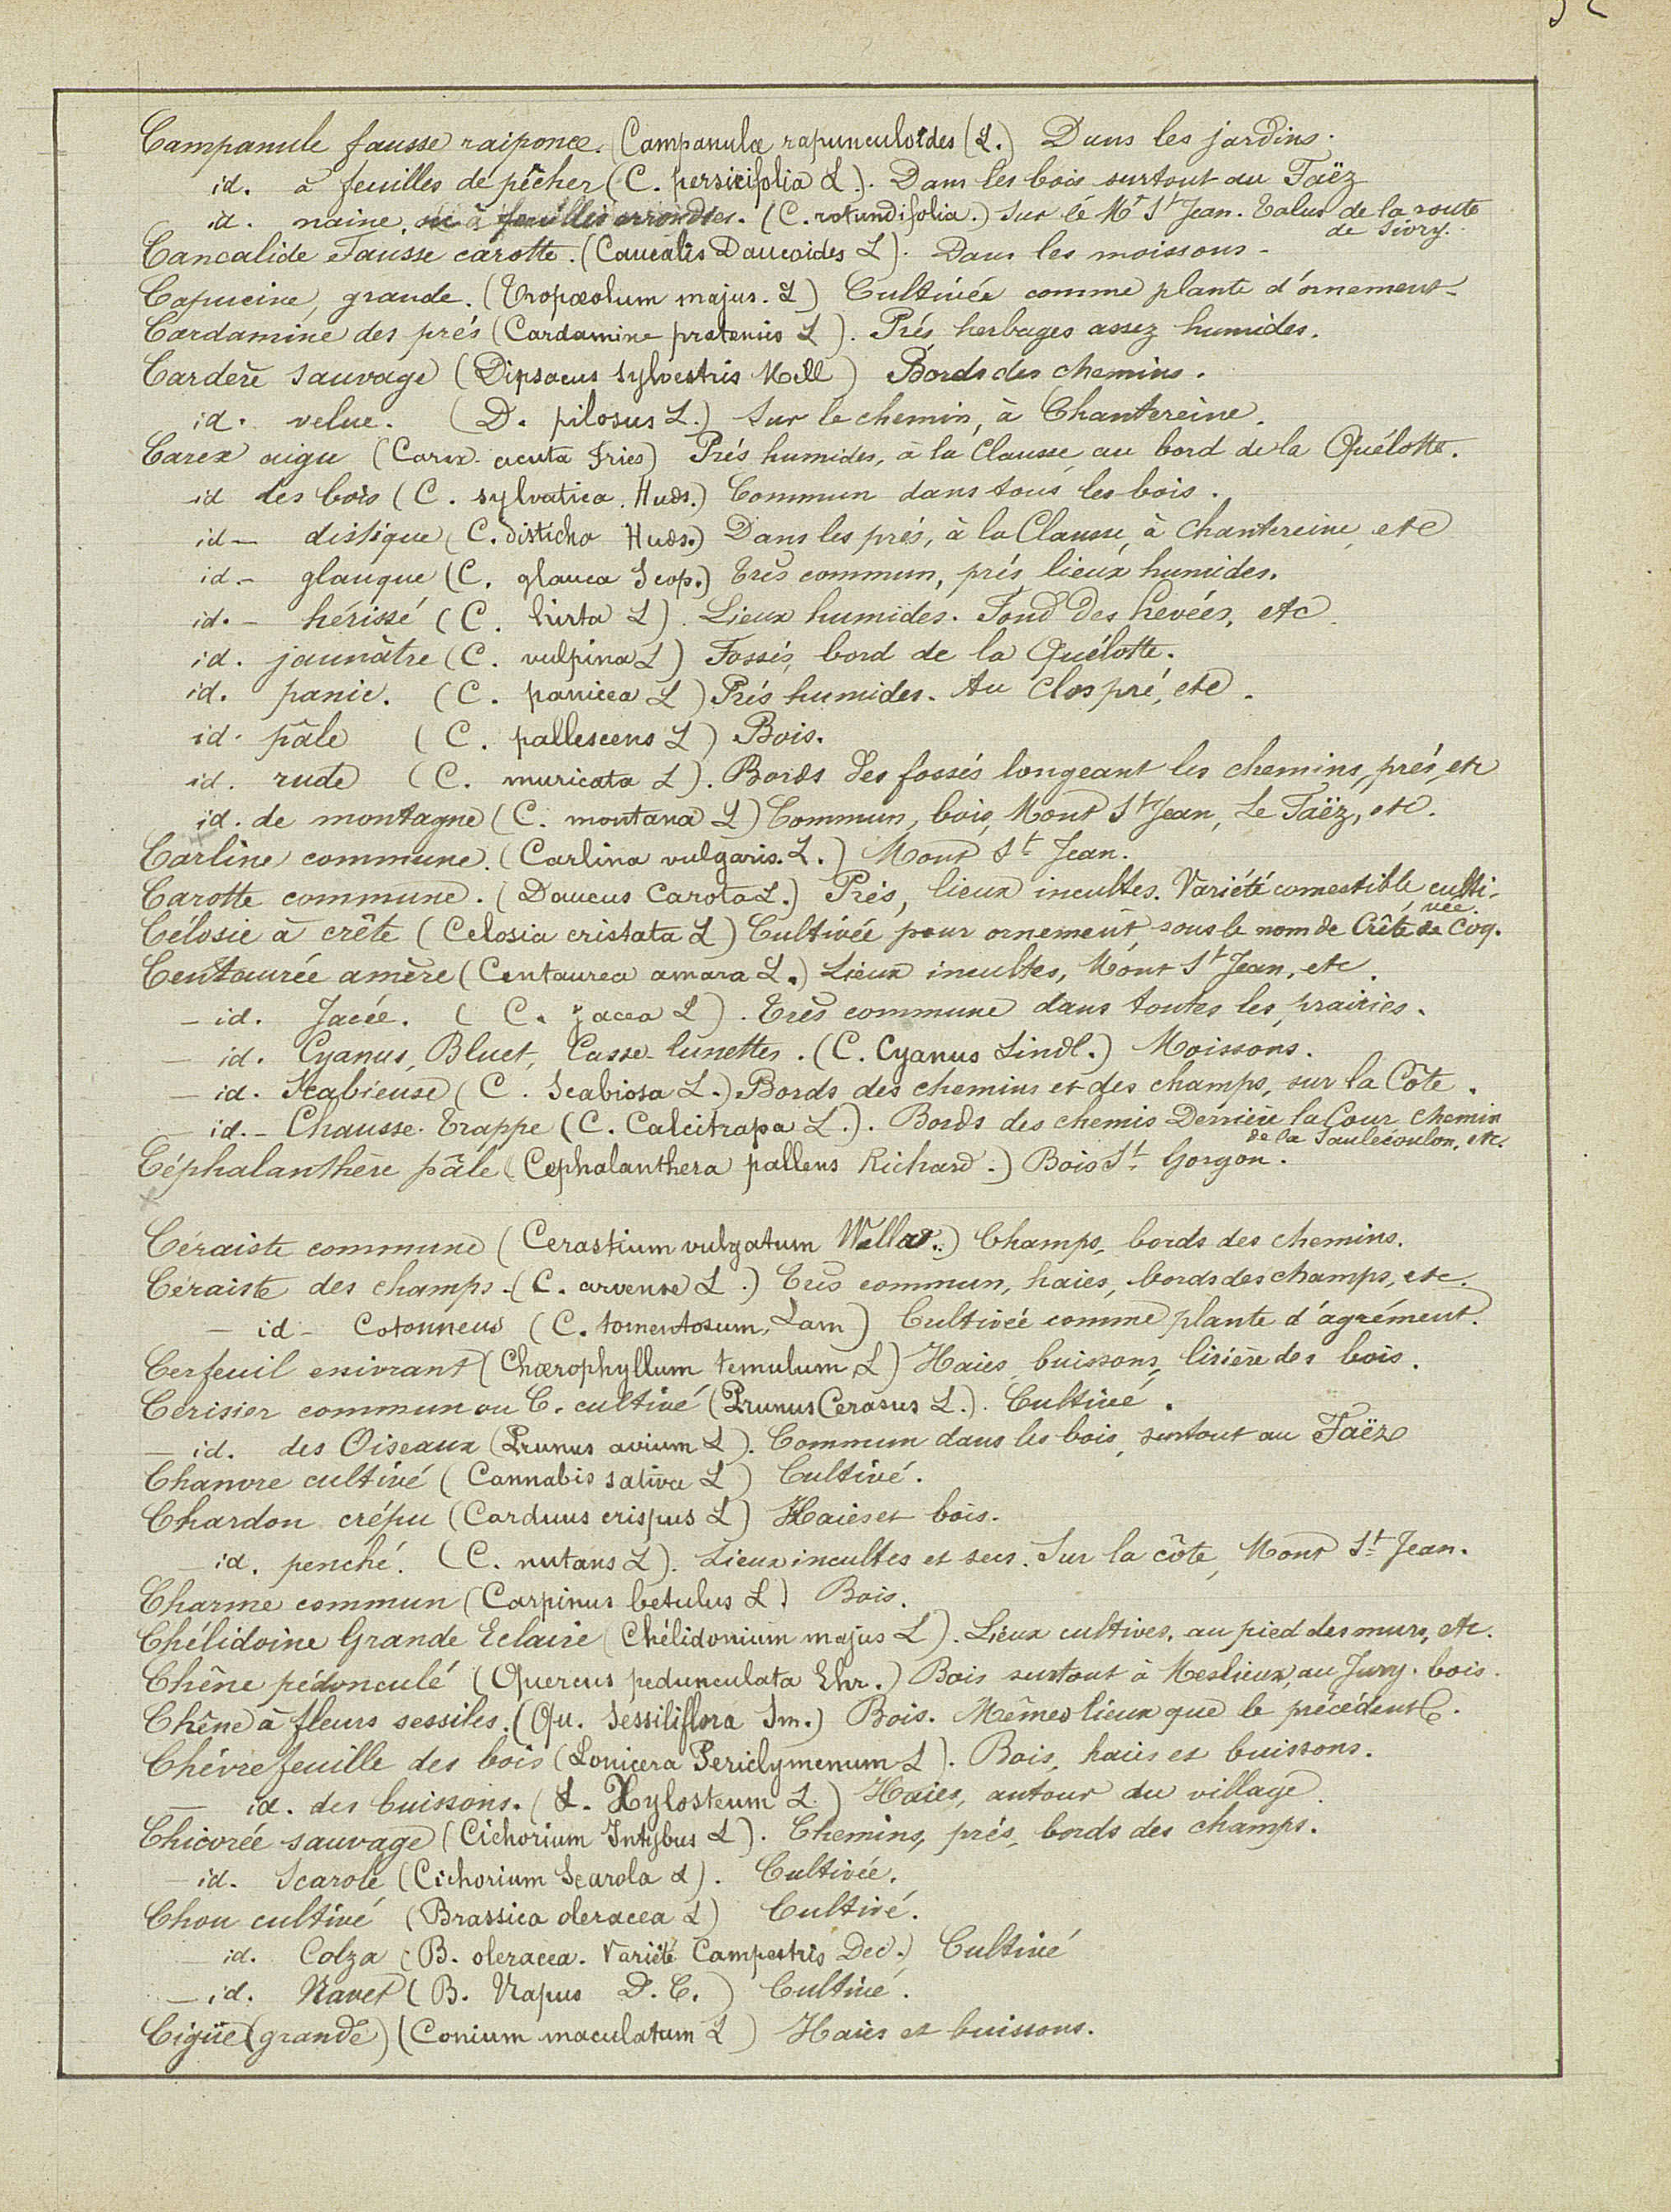 Campanule fausse raiponce. (Campanula rapunculoïdes (L.) Dans les jardins.
id. à feuilles de pêcher (C. persicifolia L.). Dans les bois surtout au Faëz
id. naine, ou à feuilles arrondies. (C. rotundifolia.) Sur le Mt St Jean. Talus de la route
de Sivry.
Cancalide Fausse carotte. (Caucalis Daucoides L). Dans les moissons.
Capucine, grande. (Tropæolum majus. L) Cultivée comme plante d'ornement.
Cardamine des prés (Cardamine pratensis L). Prés herbages assez humides.
Cardère sauvage (Dipsacus sylvestris Mill) Bords des chemins.
id. velue. (D. pilosus L.) Sur le chemin, à Chantereine.
Carex aigu (Carex acuta Fries) Prés humides, à la Clausse, au bord de la Quélotte.
id des bois (C. sylvatica. Huds.) Commun dans tous les bois.
id - distique (C. disticha Huds.) Dans les prés, à la Clausse, à Chantereine, etc
id. - glauque (C. glauca Scop.) Très commun, prés, lieux humides.
id. - hérissé (C. hirta L). Lieux humides. Fond des hevées, etc.
id. jaunâtre (C. vulpina L) Fossés, bord de la Quélotte.
id. panic. (C. panicea L) Prés humides. Au Clos pré, etc.
id. pâle (C. pallescens L) Bois.
id. rude (C. muricata L). Bords des fossés longeant les chemins, prés, etc
id. de montagne (C. montana L) Commun, bois, Mont St Jean, Le Faëz, etc.
Carline commune. (Carlina vulgaris. L.) Mont St Jean.
Carotte commune. (Daucus Carota L.) Prés, lieux incultes. Variété comestible culti-
vée.
Célosie à crête (Celosia cristata L) Cultivée pour ornement, sous le nom de Crête de Coq.
Centaurée amère (Centaurea amara L.) Lieux incultes, Mont St Jean, etc.
- id. Jacée. (C. jacea L). Très commune dans toutes les prairies.
- id. Cyanus, Bluet, Casse-lunettes. (C. Cyanus Lindl.) Moissons.
- id. Scabieuse (C. Scabiosa L.) Bords des chemins et des champs, sur la Côte.
- id. - Chausse-Trappe (C. Calcitrapa L.). Bords des chemis Derrière la Cour, chemin
de la Saulécoulon, etc.
Céphalanthère pâle (Cephalanthera pallens Richard.) Bois St Gorgon.
Céraiste commune (Cerastium vulgatum) Champs, bords des chemins.
Céraiste des champs. (C. arvense L.) Très commun, haies, bords des champs, etc.
- id - Cotonneus (C. tomentosum, Lam) Cultivée comme plante d'agrément.
Cerfeuil enivrant (Chœrophyllum temulum L) Haies, buissons, lisière des bois.
Cerisier commun ou C. cultivé (Prunus Cerasus L.). Cultivé.
- id. des Oiseaux (Prunus avium L). Commun dans les bois, surtout au Faëz
Chanvre cultivé (Cannabis sativa L) Cultivé.
Chardon crépu (Carduus crispus L) Haies et bois.
id. penché. (C. nutans L). Lieux incultes et secs. Sur la côte, Mont St Jean.
Charme commun (Carpinus betulus L) Bois.
Chélidoine Grande Eclaire (Chélidonium majus L). Lieux cultivés, au pied des murs, etc.
Chêne pédonculé (Quercus pedunculata Ehr.) Bois surtout à Meslieux, au Jury. bois.
Chêne à fleurs sessiles. (Qu. Sessiliflora Sm.) Bois. Mêmes lieux que le précédent.
Chèvrefeuille des bois (Lonicera Periclymenum L). Bois, haies et buissons.
- id. des buissons. (L. Xylosteum L.) Haies, autour du village.
Chicorée sauvage (Cichorium Intybus L). Chemins, prés, bords des champs.
- id. Scarole (Cichorium Scarola L). Cultivée.
Chou cultivé (Brassica oleracea L) Cultivé.
- id. Colza (B. oleracea. Variété Campestris Dec.) Cultivé
- id. Navet (B. Napus D. C.) Cultivé.
Cigüe (grande) (Conium maculatum L) Haies et buissons.